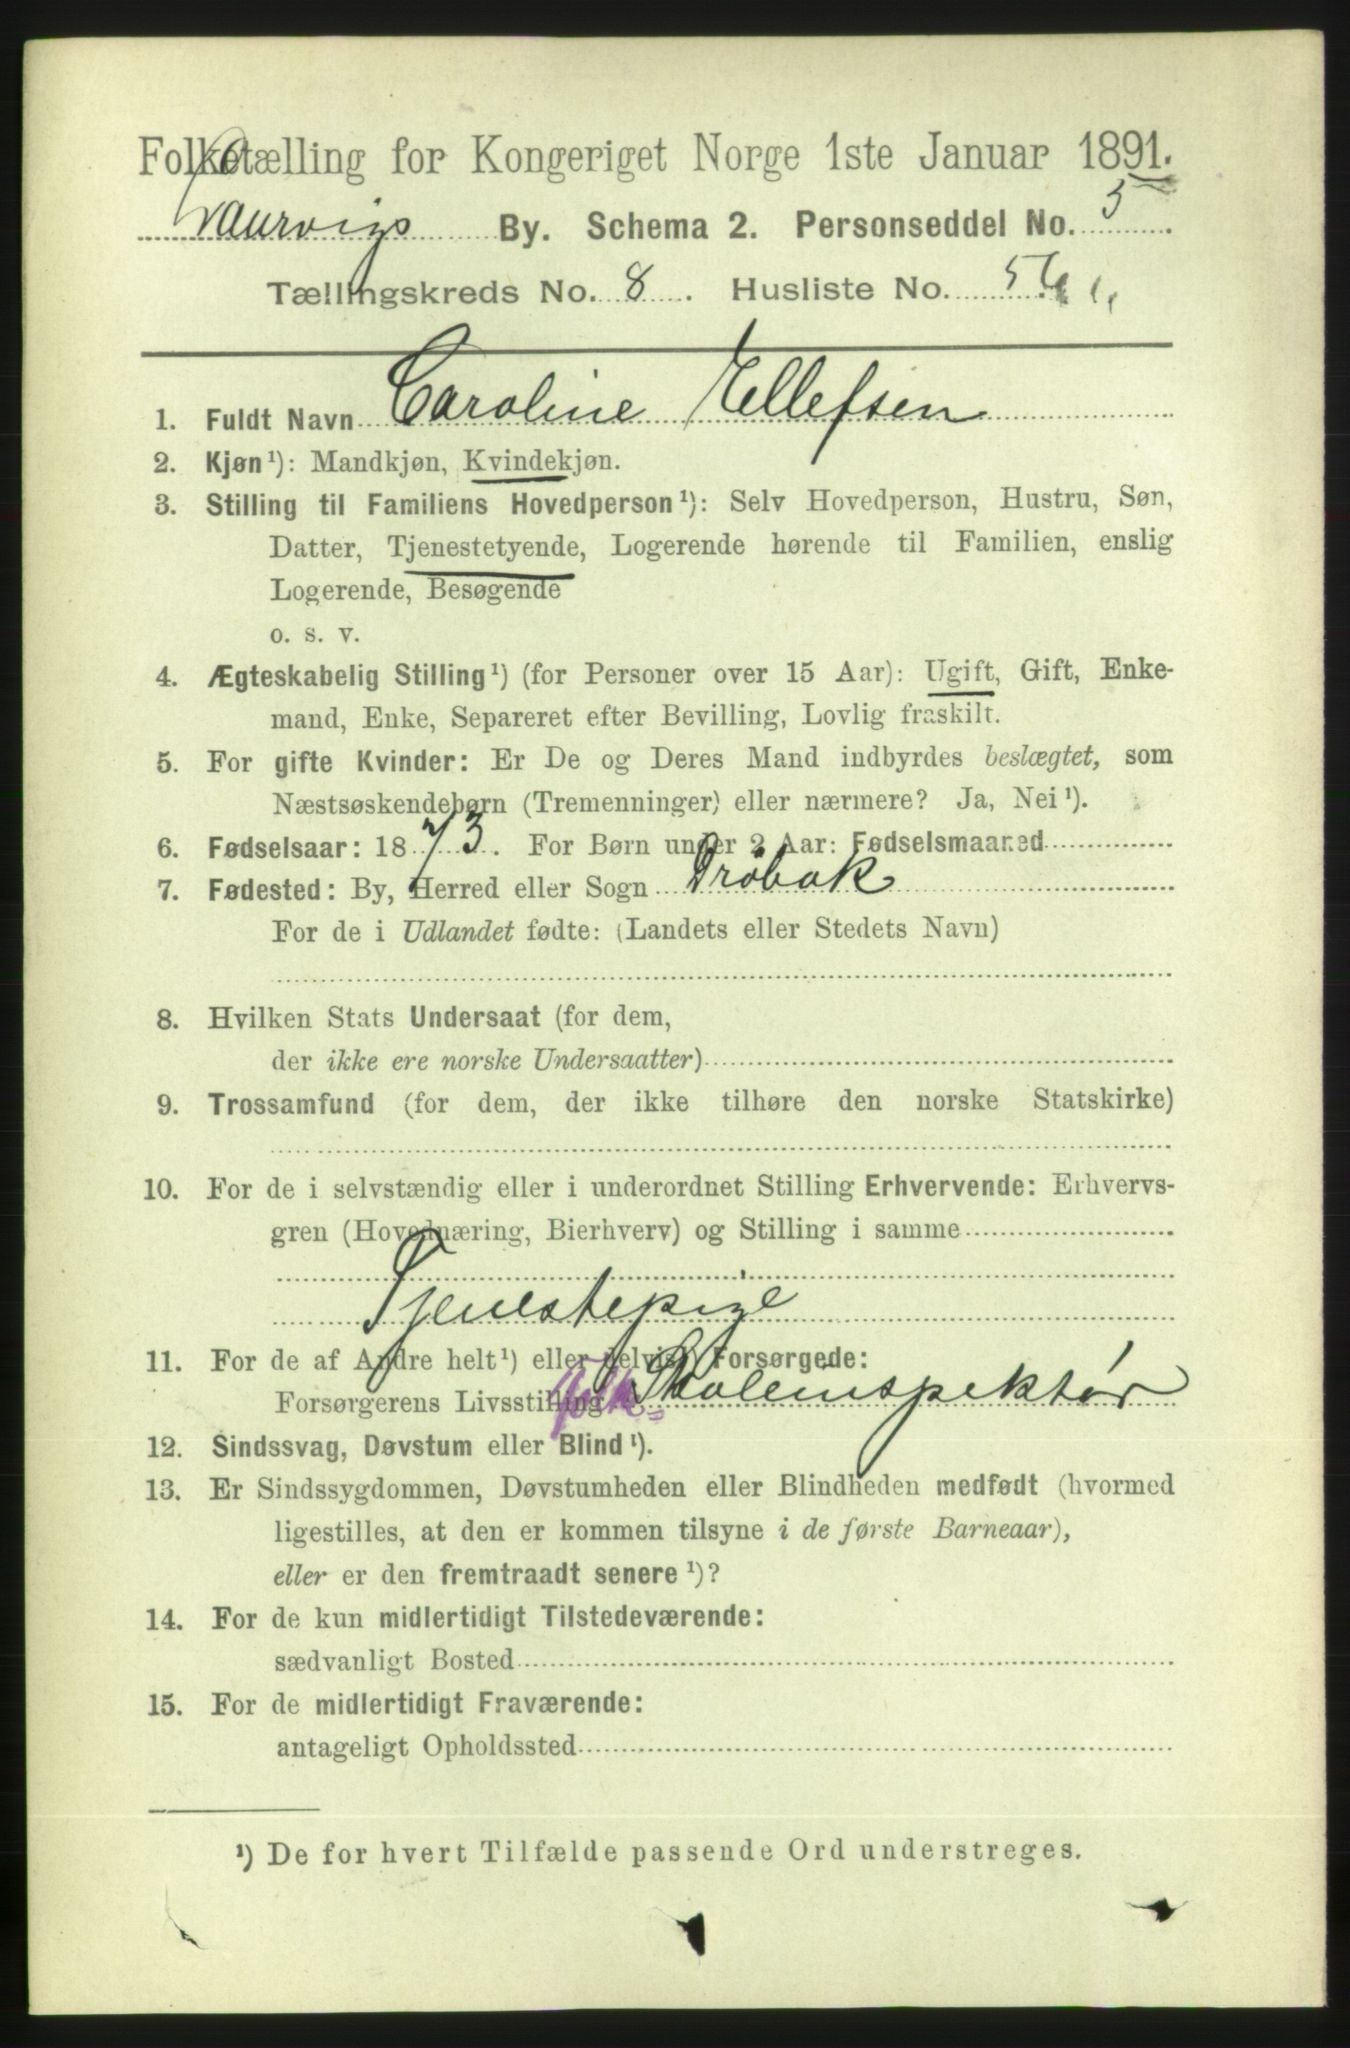 Folketælling for Kongeriget Norge 1ste Januar 1891.
Laurvigs By. Schema 2. Personseddel No. 5
Tællingskreds No. 8. Husliste No. 56
1. Fuldt Navn Caroline Ellefsen
2. Kjøn¹): Mandkjøn, Kvindekjøn.
3. Stilling til Familiens Hovedperson¹): Selv Hovedperson, Hustru, Søn,
Datter, Tjenestetyende, Logerende hørende til Familien, enslig
Logerende, Besøgende
o. s. v.
4. Ægteskabelig Stilling¹) (for Personer over 15 Aar): Ugift, Gift, Enke-
mand, Enke, Separeret efter Bevilling, Lovlig fraskilt.
5. For gifte Kvinder: Er De og Deres Mand indbyrdes beslægtet, som
Næstsøskendebørn (Tremenninger) eller nærmere? Ja, Nei¹).
6. Fødselsaar: 1873. For Børn under 2 Aar: Fødselsmaaned
7. Fødested: By, Herred eller Sogn Dröbak
For de i Udlandet fødte: (Landets eller Stedets Navn)
8. Hvilken Stats Undersaat (for dem,
der ikke ere norske Undersaatter)
9. Trossamfund (for dem, der ikke tilhøre den norske Statskirke)
10. For de i selvstændig eller i underordnet Stilling Erhvervende: Erhvervs-
gren (Hovednæring, Bierhverv) og Stilling i samme
Tjenestepige
11. For de af Andre helt¹) eller delvis¹) Forsørgede:
Forsørgerens Livsstilling Skoleinspektør
12. Sindssvag, Døvstum eller Blind¹).
13. Er Sindssygdommen, Døvstumheden eller Blindheden medfødt (hvormed
ligestilles, at den er kommen tilsyne i de første Barneaar),
eller er den fremtraadt senere¹)?
14. For de kun midlertidigt Tilstedeværende:
sædvanligt Bosted
15. For de midlertidigt Fraværende:
antageligt Opholdssted
¹) De for hvert Tilfælde passende Ord understreges.